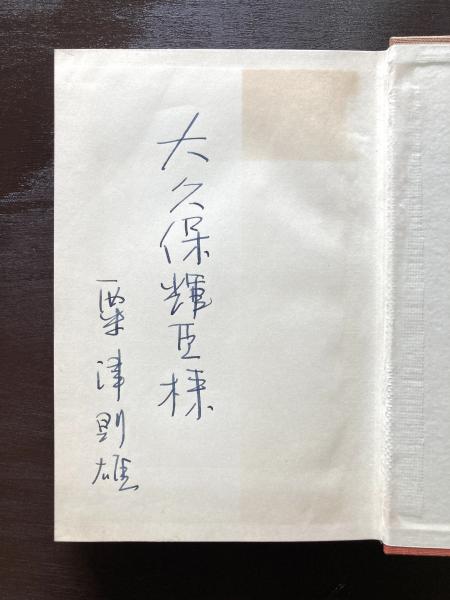 大久保輝臣様
粟津則雄